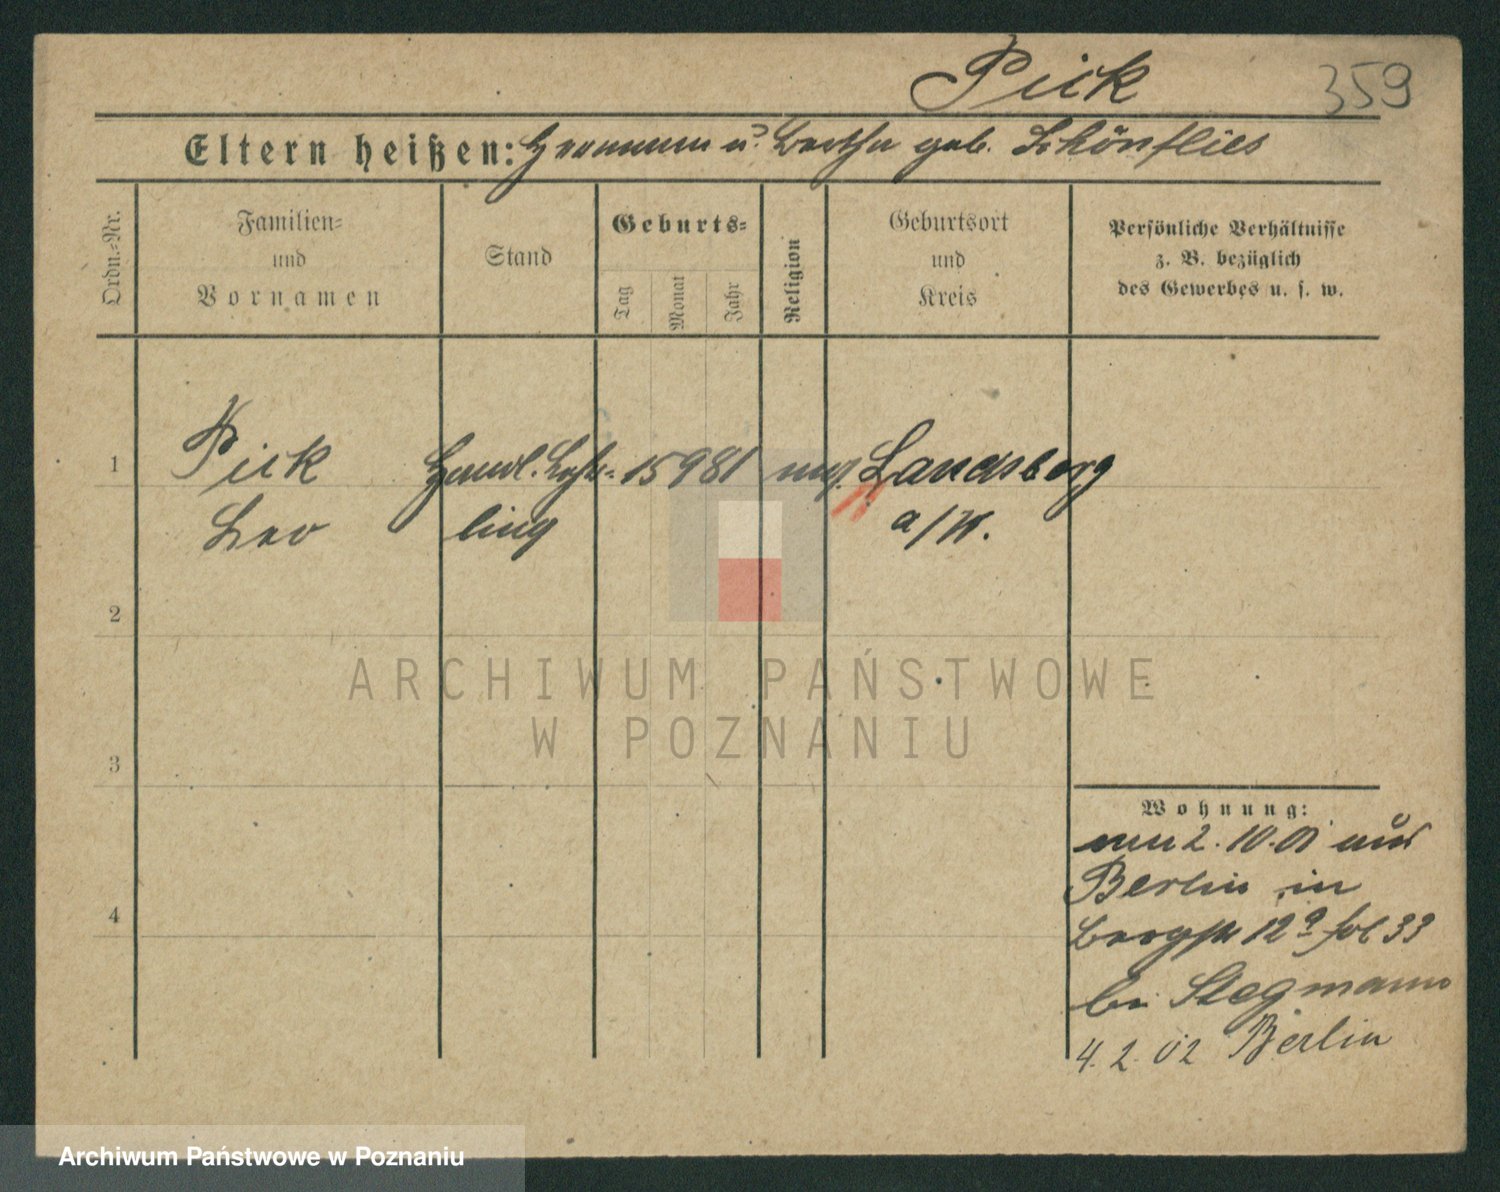 Pick
359
Eltern heißen: Hermann u. Bertha geb. Schönflies
Ordn.-Nr.
Familien-
und
Vornamen
Stand
Geburts-
Tag
Monat
Jahr
Religion
Geburtsort
und
Kreis
Persönliche Verhältnisse
z. B. bezüglich
des Gewerbes u. s. w.
1
Pick
Leo
Handl. Lehr-
ling
15 9 81
mos.
Landsberg
a/W.
2
3
4
Wohnung:
2.10.01 aus
Berlin in
Bergstr 12a 33
bei Stegmann
4. 2. 02 Berlin
ARCHIWUM PAŃSTWOWE
W POZNANIU
Archiwum Państwowe w Poznaniu